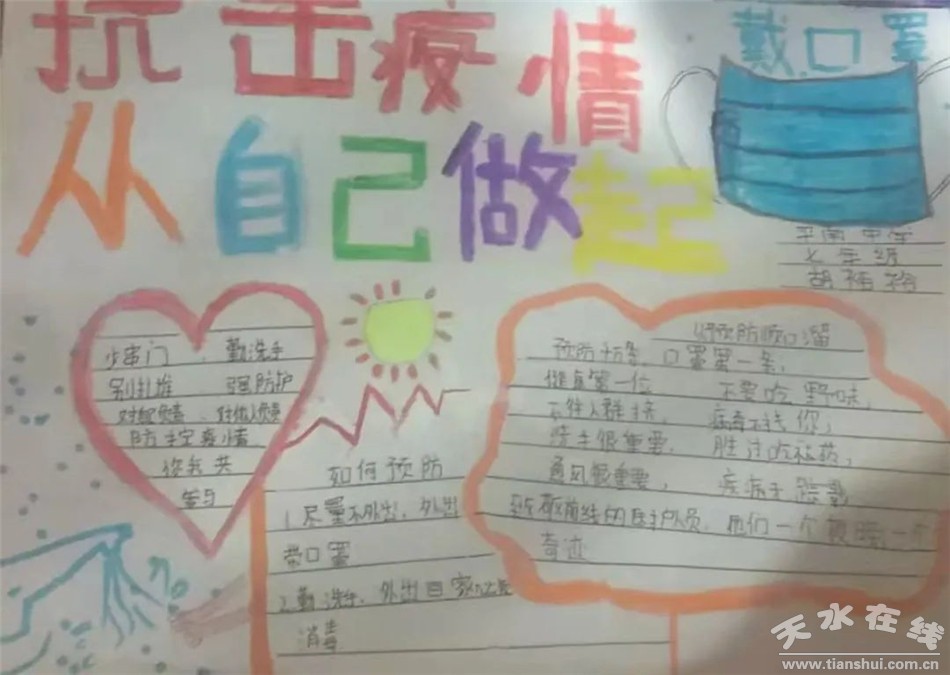 抗击疫情
从自己做起
戴口罩
平南中学
七年级
胡
少串门 勤洗手
别扎堆 强防护
对自己负责 对他人负责
防控疫情
你我共
参与
如何预防
1.尽量不外出,外出
带口罩
2.勤洗手,外出回家
消毒
预防顺口溜
预防 口罩第一条,
健康第一位 不要吃野味,
人群挤, 病毒 找你,
洗手很重要, 胜过吃 药,
通风很重要,
致敬前线的医护人员,他们一个
奇迹
天水在线
www.tianshui.com.cn